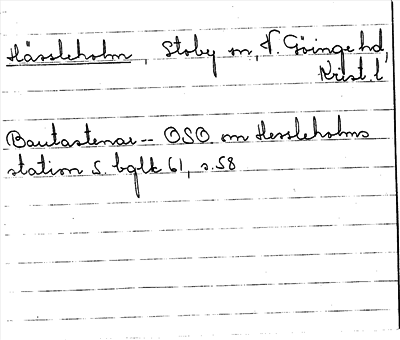 Hässleholm, Stoby sn, V. Göinge hd,
Krist. l
Bautastenar -- OSO om Hessleholms
station S. bglk 61, s. 58